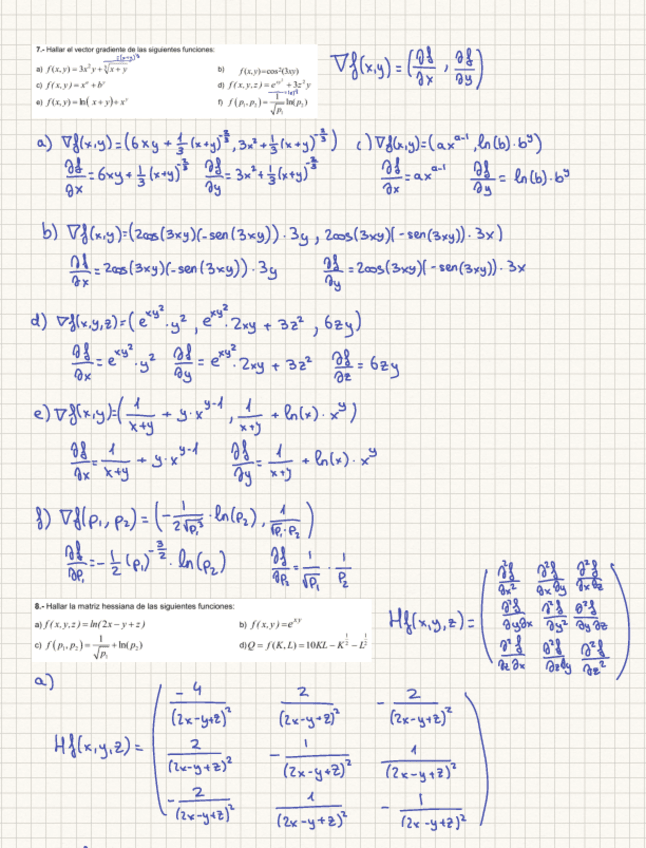 7.- Hallar el vector gradiente de las siguientes funciones:
a) f(x,y) = 3x²y + ∛(x+y)
b) f(x,y)=cos²(3xy)
c) f(x,y) = xᵃ + bʸ
d) f(x,y,z) = e^(xy²) + 3z²y
e) f(x,y) = ln(x+y) + xʸ
f) f(p₁,p₂) = 1/√p₁ ln(p₂)
∇f(x,y) = (∂f/∂x , ∂f/∂y)
a) ∇f(x,y) = (6xy + 1/3 (x+y)^(-2/3), 3x² + 1/3 (x+y)^(-2/3))
∂f/∂x = 6xy + 1/3 (x+y)^(-2/3) ∂f/∂y = 3x² + 1/3 (x+y)^(-2/3)
c) ∇f(x,y) = (ax^(a-1), ln(b)·bʸ)
∂f/∂x = ax^(a-1) ∂f/∂y = ln(b)·bʸ
b) ∇f(x,y) = (2cos(3xy)(-sen(3xy))·3y, 2cos(3xy)(-sen(3xy))·3x)
∂f/∂x = 2cos(3xy)(-sen(3xy))·3y ∂f/∂y = 2cos(3xy)(-sen(3xy))·3x
d) ∇f(x,y,z) = (e^(xy²)·y², e^(xy²)·2xy + 3z², 6zy)
∂f/∂x = e^(xy²)·y² ∂f/∂y = e^(xy²)·2xy + 3z² ∂f/∂z = 6zy
e) ∇f(x,y) = (1/(x+y) + y·x^(y-1), 1/(x+y) + ln(x)·xʸ)
∂f/∂x = 1/(x+y) + y·x^(y-1) ∂f/∂y = 1/(x+y) + ln(x)·xʸ
f) ∇f(p₁,p₂) = (-1/(2√p₁³)·ln(p₂), 1/(√p₁·p₂))
∂f/∂p₁ = -1/2 (p₁)^(-3/2)·ln(p₂) ∂f/∂p₂ = 1/√p₁ · 1/p₂
8.- Hallar la matriz hessiana de las siguientes funciones:
a) f(x,y,z) = ln(2x-y+z)
b) f(x,y) = e^(xy)
c) f(p₁,p₂) = 1/√p₁ + ln(p₂)
d) Q = f(K,L) = 10KL - K^(1/2) - L^(1/2)
Hf(x,y,z) =
∂²f/∂x² ∂²f/∂x∂y ∂²f/∂x∂z
∂²f/∂y∂x ∂²f/∂y² ∂²f/∂y∂z
∂²f/∂z∂x ∂²f/∂z∂y ∂²f/∂z²
a)
Hf(x,y,z) =
-4/(2x-y+z)² 2/(2x-y+z)² -2/(2x-y+z)²
2/(2x-y+z)² -1/(2x-y+z)² 1/(2x-y+z)²
-2/(2x-y+z)² 1/(2x-y+z)² -1/(2x-y+z)²